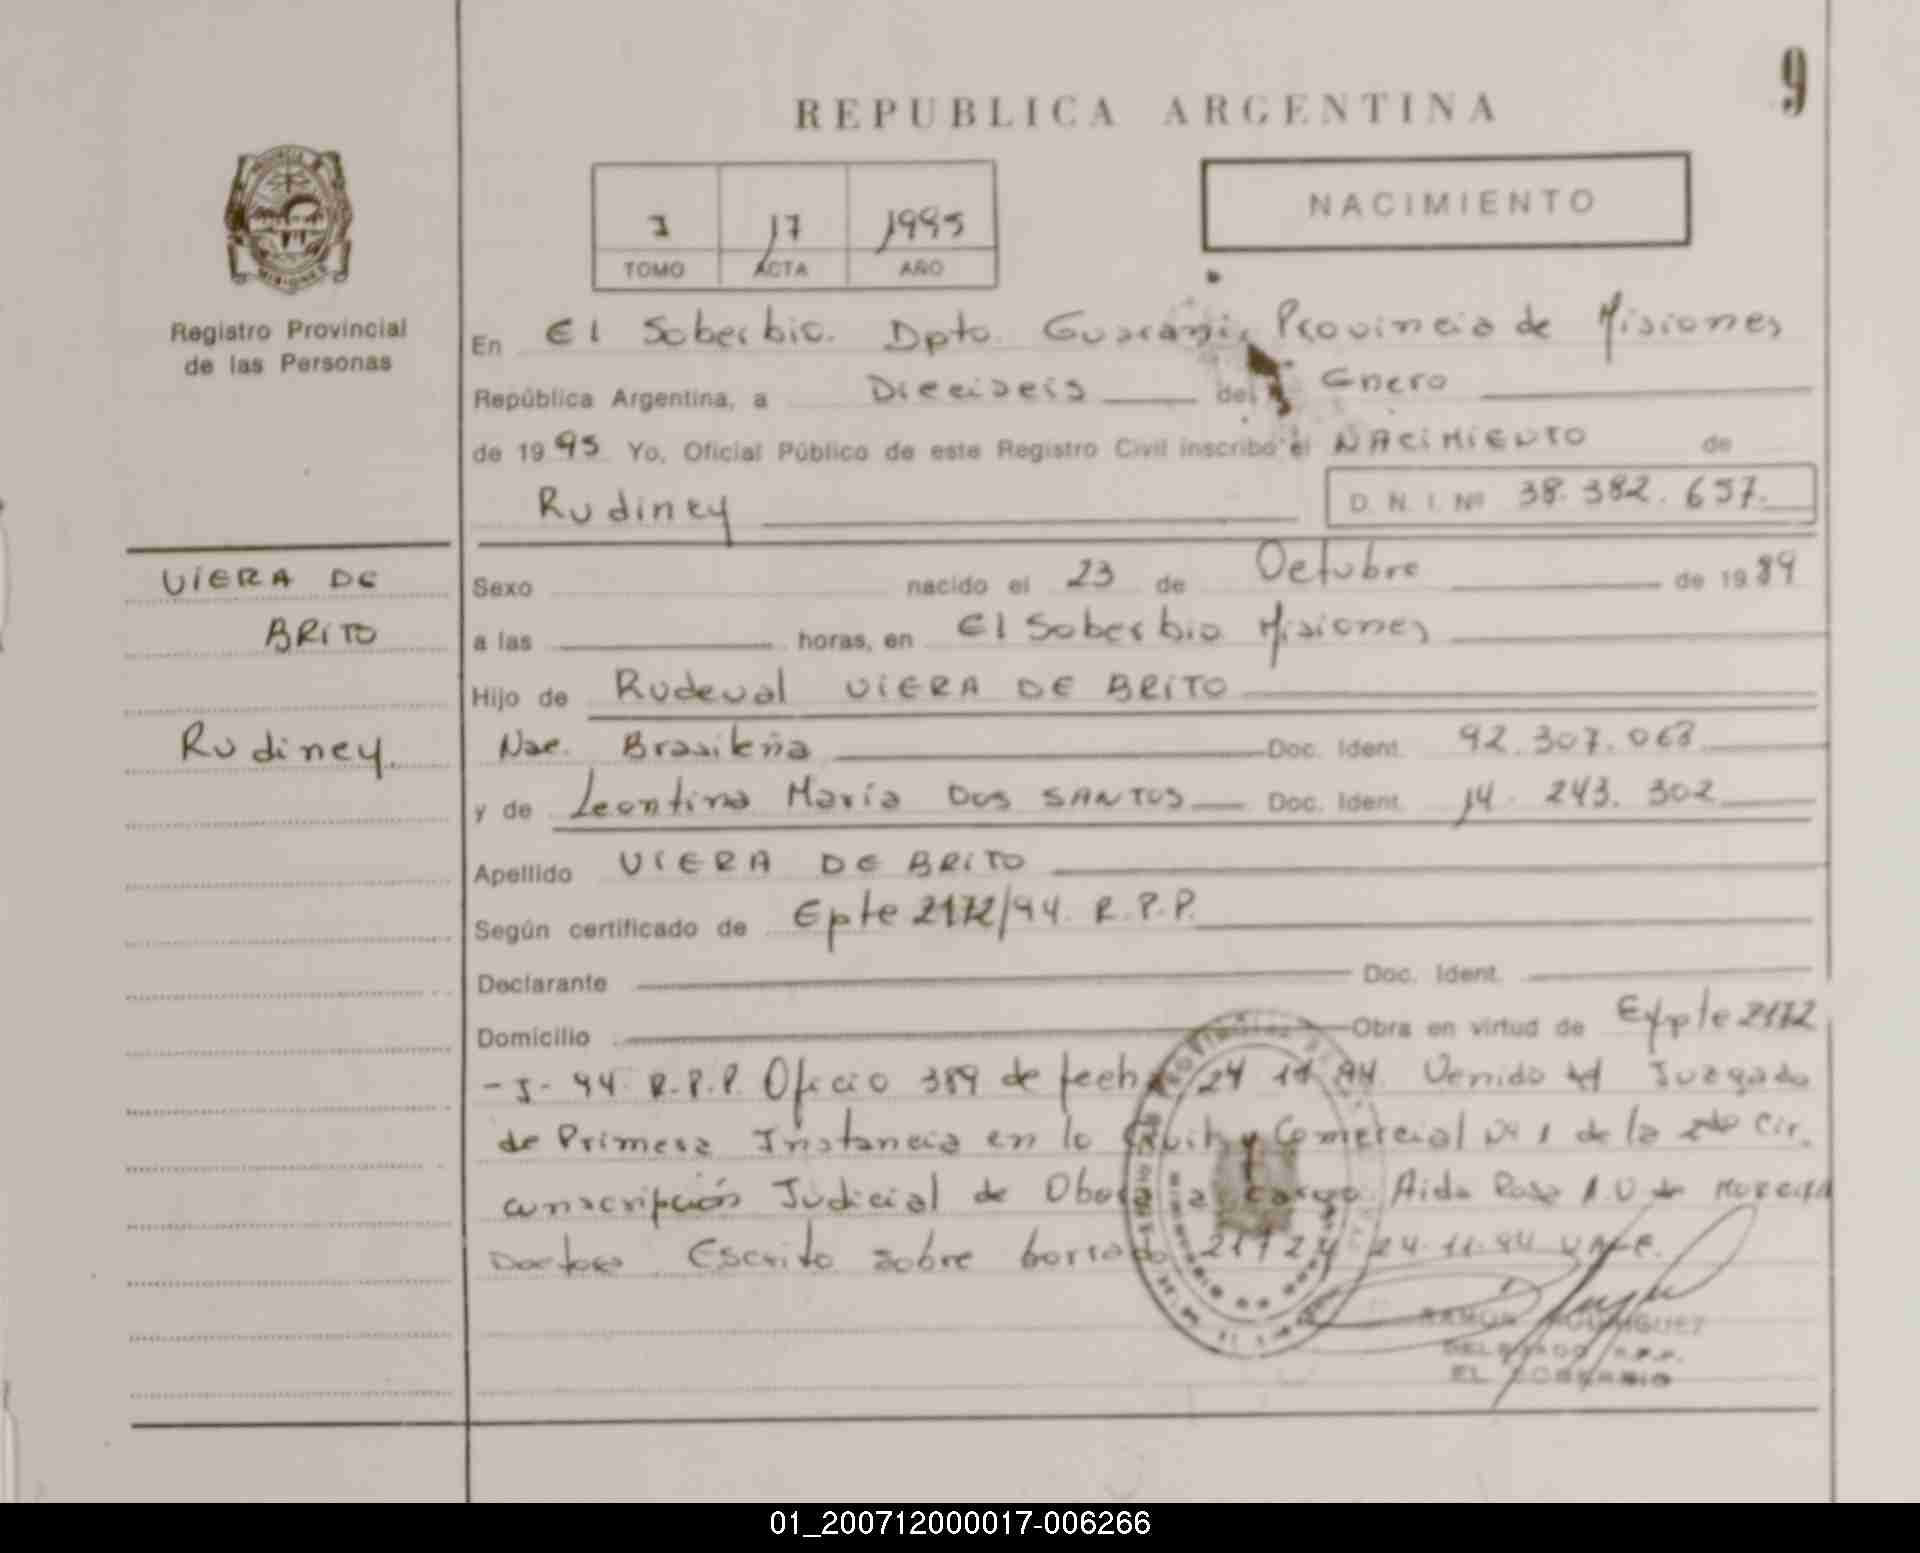 9
REPUBLICA ARGENTINA
1 17 1995
TOMO ACTA AÑO
NACIMIENTO
Registro Provincial
de las Personas
En El Soberbio. Dpto. Guarani, Provincia de Misiones
República Argentina, a Dieciseis del Enero
de 1995 Yo, Oficial Público de este Registro Civil inscribo el NACIMIENTO de
Rudiney D. N. I. Nº 38.382.657.
VIERA DE
BRITO
Rudiney.
Sexo nacido el 23 de Octubre de 1989
a las horas, en El Soberbio Misiones
Hijo de Rudeval VIERA DE BRITO
Nac. Brasileña Doc. Ident. 92.307.063
y de Leontina María DOS SANTOS Doc. Ident. 14.243.302
Apellido VIERA DE BRITO
Según certificado de Epte 2172/94. R.P.P.
Declarante Doc. Ident.
Domicilio Obra en virtud de Expte 2172
-J-94 R.P.P. Oficio 389 de fecha 24 11 94. Venido del Juzgado
de Primera Instancia en lo Civil y Comercial Nº 1 de la 2da Cir.
cunscripción Judicial de Oberá a cargo Aida Rosa
Doctora Escrito sobre borrado 2172 y 24.11.94 VALE.
RAMON RODRIGUEZ
DELEGADO R.P.P.
EL SOBERBIO
01_200712000017-006266